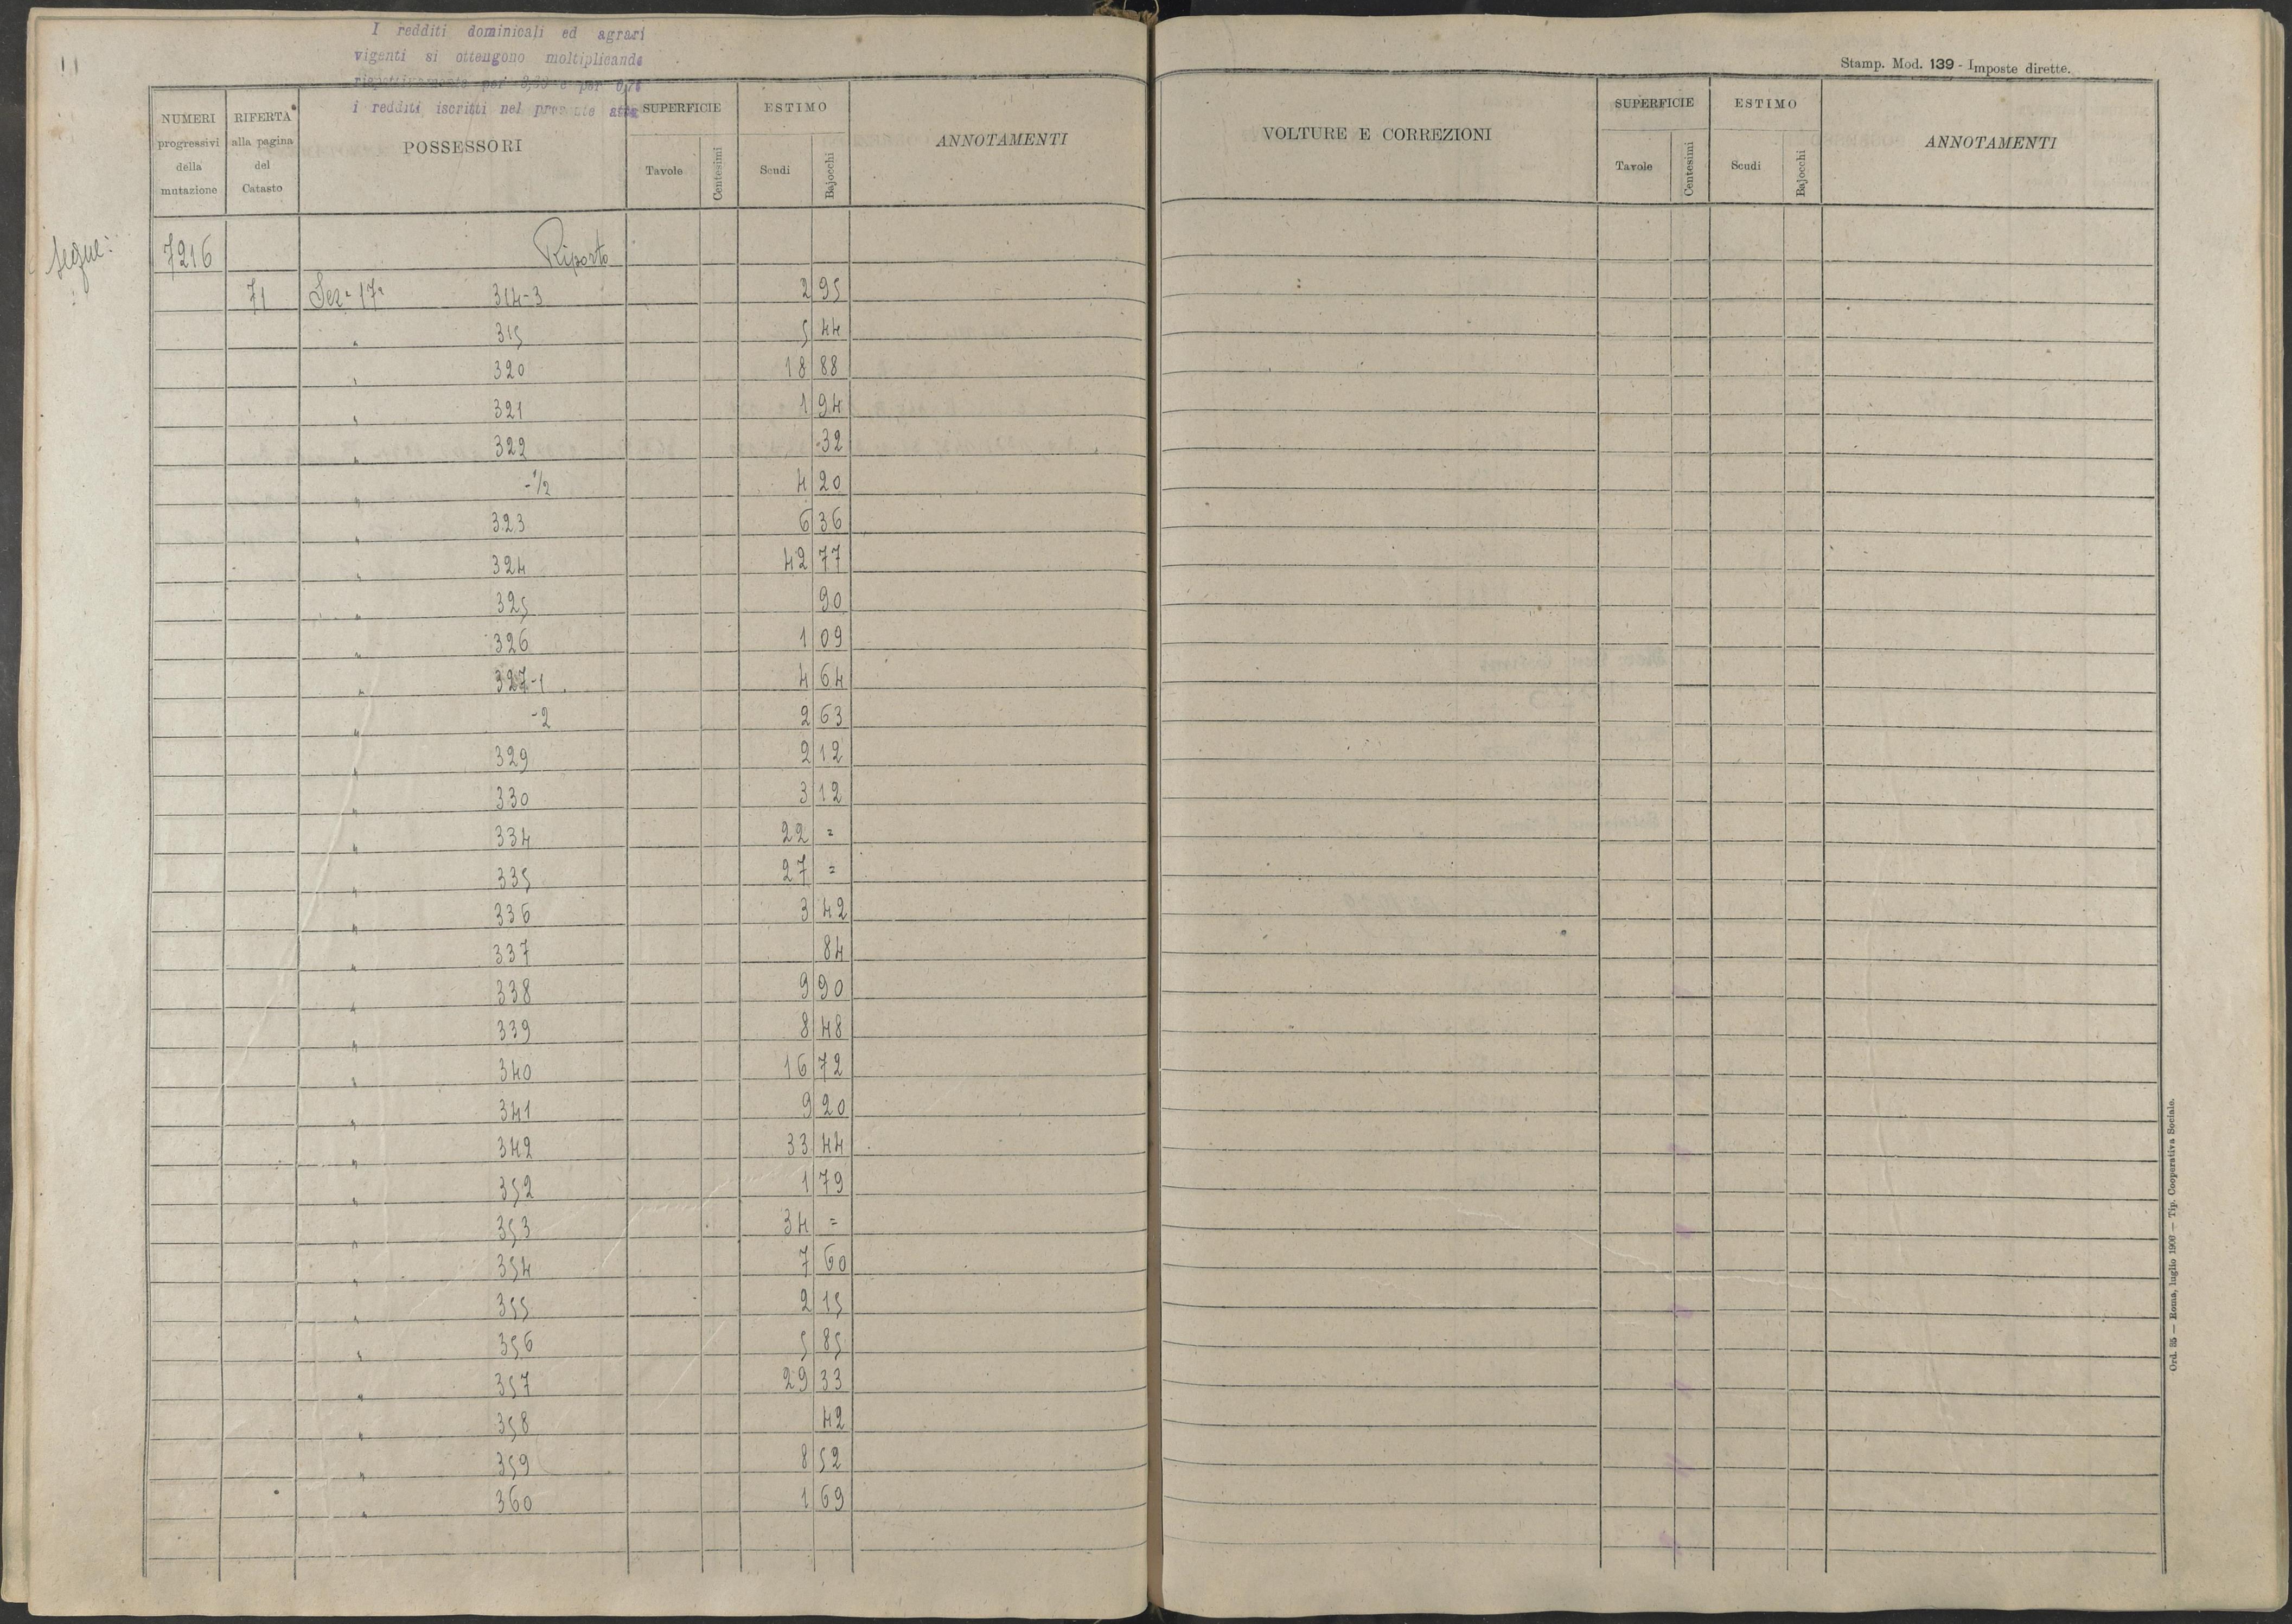 I redditi dominicali ed agrari
vigenti si ottengono moltiplicando
rispettivamente per e per
i redditi iscritti nel presente atto
Stamp. Mod. 139 - Imposte dirette.
NUMERI progressivi della mutazione RIFERTA alla pagina del Catasto POSSESSORI SUPERFICIE Tavole Centesimi ESTIMO Scudi Bajocchi ANNOTAMENTI
VOLTURE E CORREZIONI SUPERFICIE Tavole Centesimi ESTIMO Scudi Bajocchi ANNOTAMENTI
segue: 7216 Riporto
71 Sez. 17a 314-3 2 95
" 315 5 44
" 320 18 88
" 321 1 94
" 322 -32
" -1/2 4 20
" 323 6 36
" 324 42 77
" 325 90
" 326 1 09
" 327-1 4 64
" -2 2 63
" 329 2 12
" 330 3 12
" 334 22 =
" 335 27 =
" 336 3 42
" 337 84
" 338 9 90
" 339 8 48
" 340 16 72
" 341 9 20
" 342 33 44
" 352 1 79
" 353 34 =
" 354 7 60
" 355 2 15
" 356 5 85
" 357 29 33
" 358 42
" 359 8 52
" 360 1 69
Ord. 35 — Roma, luglio 1906 — Tip. Cooperativa Sociale.